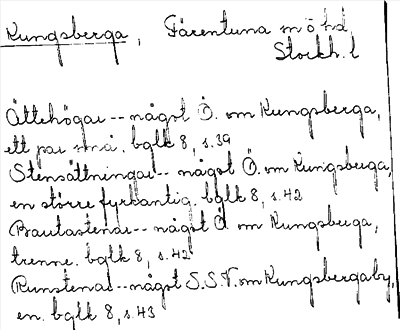 Kungsberga, Färentuna sn ö hd
Stockh. l
Ättehögar -- något Ö. om Kungsberga,
ett par små. bglk 8, s. 39
Stensättningar -- något Ö. om Kungsberga,
en större fyrkantig. bglk 8, s. 42
Bautastenar -- något Ö om Kungsberga,
trenne. bglk 8, s. 42
Runstenar -- något S.S.V. om Kungsberga by,
en. bglk 8, s. 43